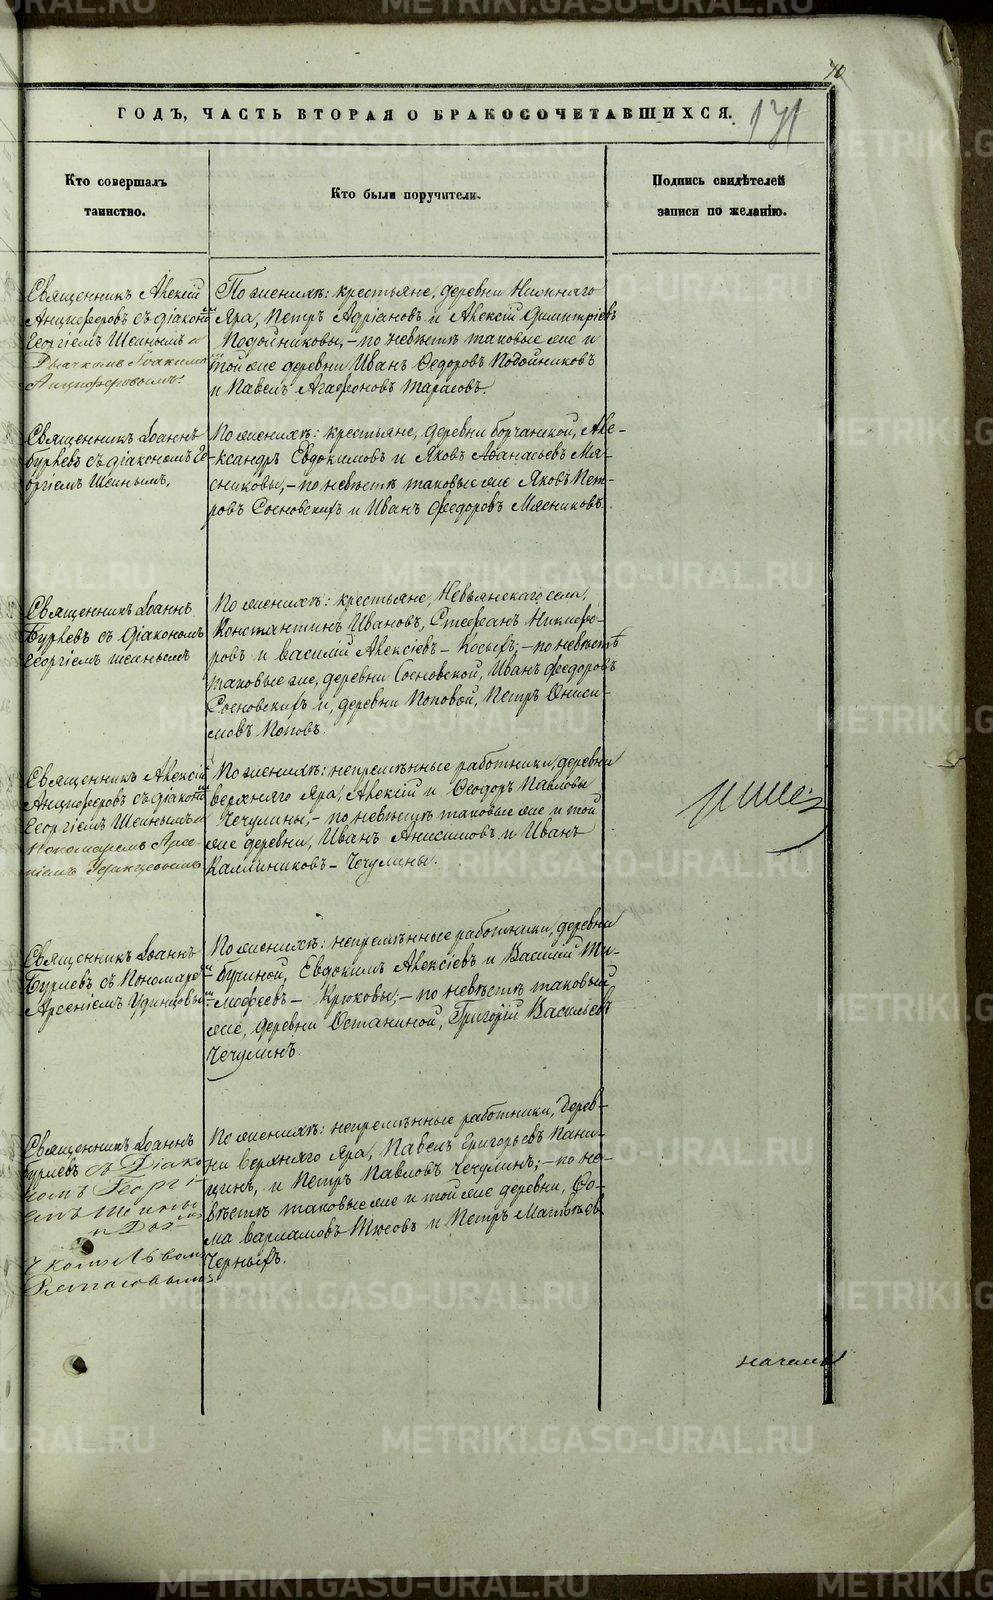 70
ГОДЪ, ЧАСТЬ ВТОРАЯ О БРАКОСОЧЕТАВШИХСЯ.
171
Кто совершалъ
таинство.
Кто были поручители.
Подпись свидѣтелей
записи по желанію.
Священникъ Алексій
Анциферовъ съ діакономъ
Георгіемъ Шеинымъ и
Дьячкомъ Іоакимомъ
Анциферовымъ.
По женихѣ: крестьяне, деревни Нижняго
Яра, Петръ Адріановъ и Алексій Димитріевъ
Подойниковы, – по невѣстѣ таковые же и
той же деревни Иванъ Ѳедоровъ Подойниковъ
и Павелъ Агафоновъ Тарасовъ.
Священникъ Іоаннъ
Бурлевъ съ діакономъ Ге-
оргіемъ Шеинымъ,
По женихѣ: крестьяне, деревни Борчаниной, Але-
ксандръ Евдокимовъ и Яковъ Аѳанасьевъ Мя-
сниковы, – по невѣстѣ таковые же Яковъ Пет-
ровъ Сосновскихъ и Иванъ Ѳедоровъ Мясниковъ.
Священникъ Іоаннъ
Бурлевъ съ діакономъ
Георгіемъ Шеинымъ
По женихѣ: крестьяне, Невьянскаго села,
Константинъ Ивановъ, Стефанъ Никифо-
ровъ и Василій Алексіевъ – Косыхъ; – по невѣстѣ
таковые же, деревни Сосновской, Иванъ Ѳедоровъ
Сосновскихъ и, деревни Поповой, Петръ Ониси-
мовъ Поповъ.
Священникъ Алексій
Анциферовъ съ діакономъ
Георгіемъ Шеинымъ и
Пономаремъ Арсе-
ніемъ Удинцовымъ
По женихѣ: непремѣнные работники, деревни
Верхняго Яра, Алексій и Ѳеодоръ Павловы
Чечулины, – по невѣстѣ таковые же и той
же деревни, Иванъ Анисимовъ и Иванъ
Каллиниковъ – Чечулины.
Священникъ Іоаннъ
Бурлевъ съ Пономаремъ
Арсеніемъ Удинцовымъ
По женихѣ: непремѣнные работники, деревни
Бучиной, Евдокимъ Алексіевъ и Василій Ти-
моѳеевъ – Крюковы; – по невѣстѣ таковый
же, деревни Останиной, Григорій Васильевъ
Чечулинъ.
Священникъ Іоаннъ
Бурлевъ съ Діако-
номъ Георгі-
емъ Шеинымъ
По женихѣ: непремѣнные работники, дерев-
ни Верхняго Яра, Павелъ Григорьевъ Пани-
цинъ, и Петръ Павловъ Чечулинъ; – по не-
вѣстѣ таковые же и той же деревни, Ѳо-
ма Варламовъ Тюсовъ и Петръ Матвѣевъ
Черныхъ.
METRIKI.GASO-URAL.RU